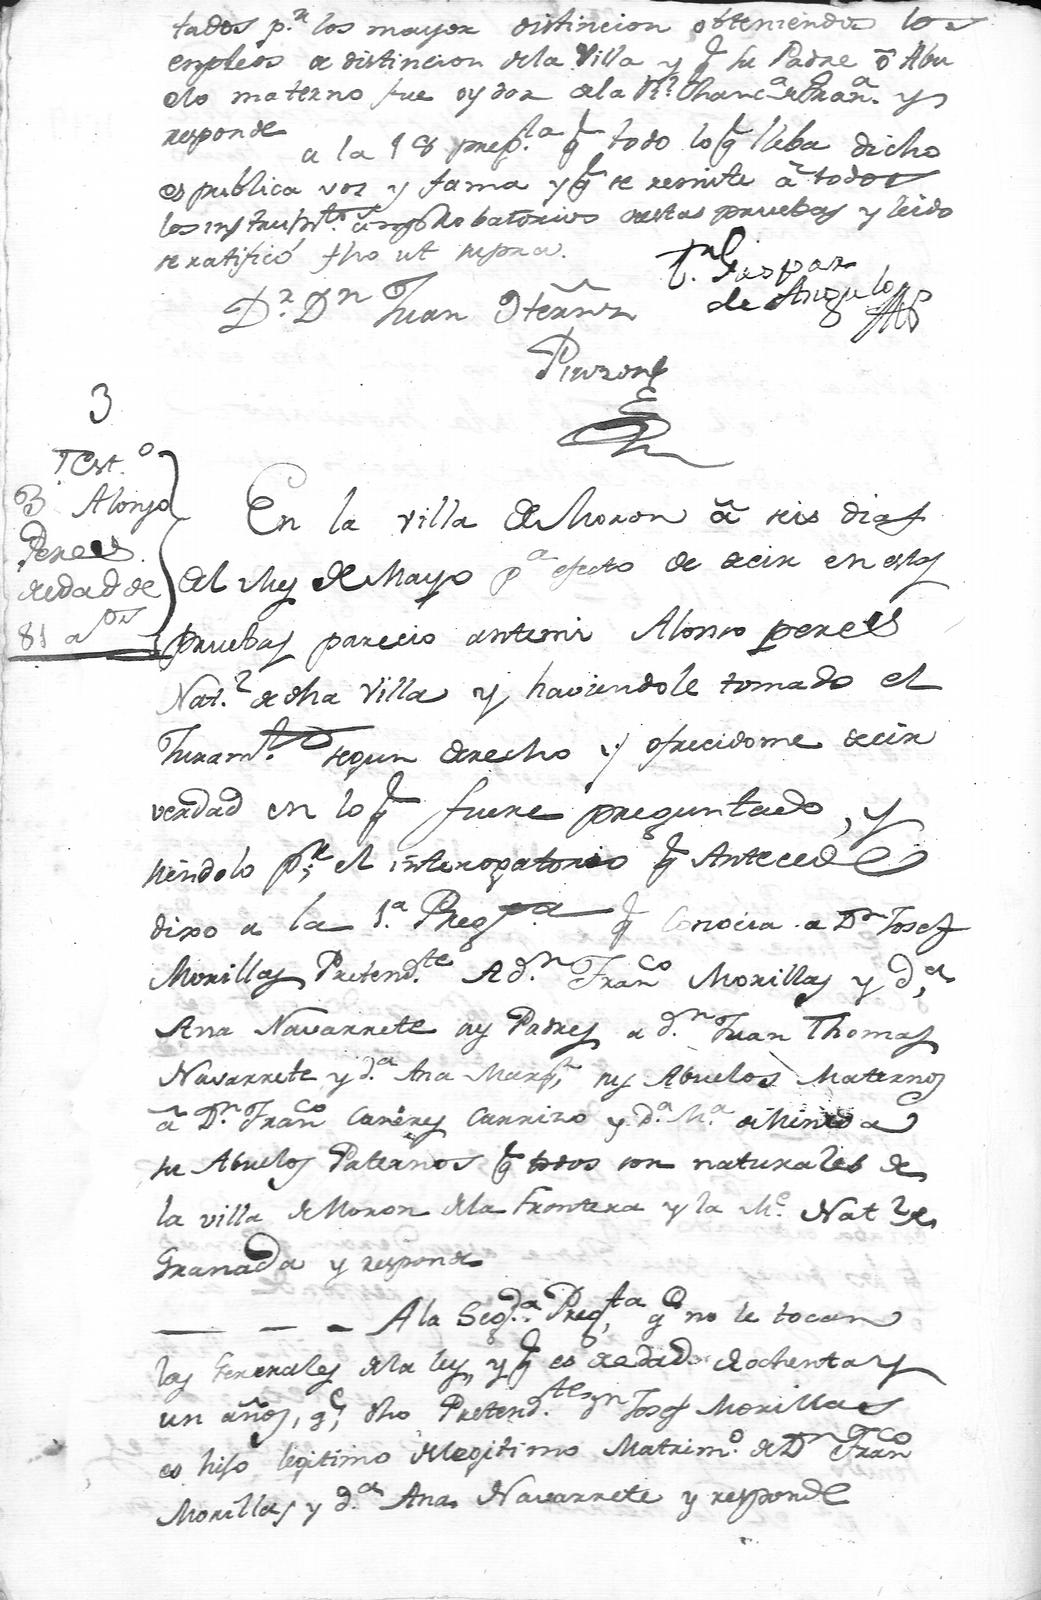 tados p.r los mayor distincion obteniendo los
enpleos a distincion dela Villa y q su Padre o Abu
elo materno fue oydor dela Rl. Chanc.a de Gran.a y
responde
a la 18 preg.ta q todo lo q lleba dicho
es publica voz y fama y q se remite a todos
los instrum.tos probatorios destas pruebas y leido
se ratificó fho ut supra.
Gaspar
de Angulo
D.r D.n Juan
Pinzon
3
Test.o
3 Alonso
Peres
de edad de
81 a.os
En la villa de Moron a seis dias
del Mes de Mayo p.a efecto de decir en estas
pruebas parecio antemi Alonso peres
Nat.l de dha Villa y haviendole tomado el
Juram.to segun derecho y ofrecidome decir
verdad en lo q fuere preguntado, y
siendolo p.r el interogatorio q Antecede
dixo a la 1.a Preg.ta q Conocia a D.n Josef
Morillas Pretend.te A d.n Fran.co Morillas y d.a
Ana Navarrete sus Padres a d.n Juan Thomas
Navarrete y d.a Ana sus Abuelos Maternos
a D.n Fran.co Carrizo y d.a M.a
su Abuelos Paternos q todos son naturales de
la villa de Moron dela Frontera y la M.e Nat.l de
Granada y responde
A la Seg.da Preg.ta q no le tocan
las Generales dela ley, y q es de edad de ochenta y
un años, q dho Pretend.te d.n Josef Morillas
es hijo legitimo de legitimo Matrim.o de D.n Fran.co
Morillas y d.a Ana Navarrete y responde